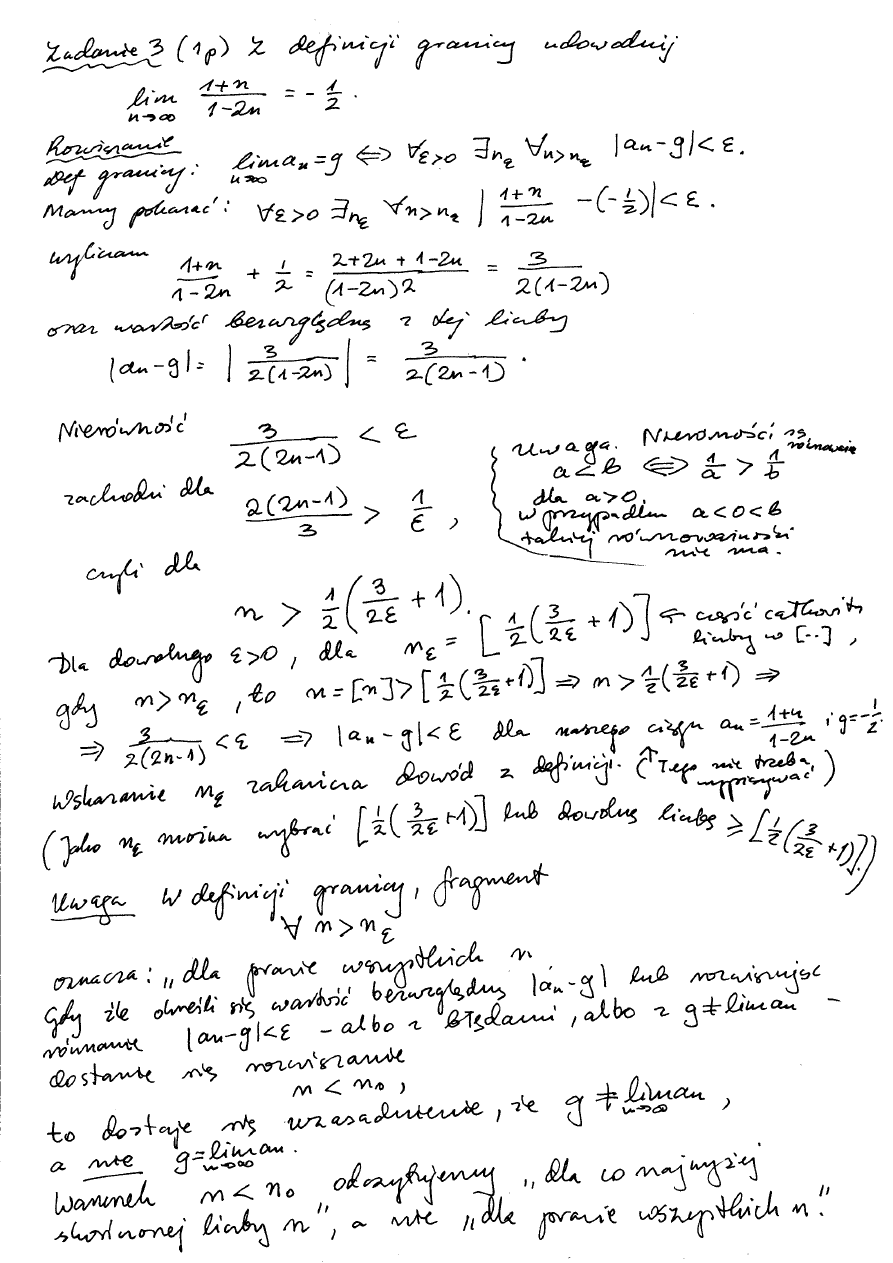 Zadanie 3 (1p) Z definicji granicy udowodnij
lim n→∞ (1+n)/(1-2n) = -1/2.
Rozwiązanie
Def granicy: lim n→∞ an = g ⇔ ∀ε>0 ∃nε ∀n>nε |an-g|<ε.
Mamy pokazać: ∀ε>0 ∃nε ∀n>nε |(1+n)/(1-2n) -(-1/2)|<ε.
wyliczam
(1+n)/(1-2n) + 1/2 = (2+2n+1-2n)/((1-2n)2) = 3/(2(1-2n))
oraz wartość bezwzględną z tej liczby
|an-g| = |3/(2(1-2n))| = 3/(2(2n-1)).
Nierówność 3/(2(2n-1)) < ε
zachodzi dla
2(2n-1)/3 > 1/ε,
Uwaga. Nierówności są równoważne
a<b ⇔ 1/a > 1/b
dla a>0,
w przypadku a<0<b
takiej równoważności
nie ma.
czyli dla
n > 1/2(3/(2ε) + 1).
Dla dowolnego ε>0, dla nε = [1/2(3/(2ε) + 1)] ← część całkowita
liczby w [··],
gdy n>nε, to n=[n]>[1/2(3/(2ε)+1)] ⇒ n>1/2(3/(2ε)+1) ⇒
⇒ 3/(2(2n-1)) <ε ⇒ |an-g|<ε dla naszego ciągu an=(1+n)/(1-2n) i g=-1/2.
Wskazanie nε zakańcza dowód z definicji. (↑Tego nie trzeba wypisywać)
(Jako nε można wybrać [1/2(3/(2ε)+1)] lub dowolną liczbę ≥ [1/2(3/(2ε)+1)].)
Uwaga W definicji granicy, fragment
∀ n>nε
oznacza: „dla prawie wszystkich n
Gdy źle określi się wartość bezwzględną |an-g| lub rozwiązując
równanie |an-g|<ε - albo z błędami, albo z g≠lim an -
dostanie się rozwiązanie
n < n₀,
to dostaje się uzasadnienie, że g ≠ lim n→∞ an,
a nie g=lim n→∞ an.
Warunek n<n₀ odczytujemy „dla co najwyżej
skończonej liczby n", a nie „dla prawie wszystkich n".